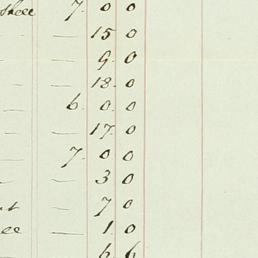 7. 0 0
— 15 0
— 9. 0
— 18. 0
6. 0. 0
— 17. 0
— 7. 0 0
— — 3 0
— 7 0
— 1. 0
— 6 6